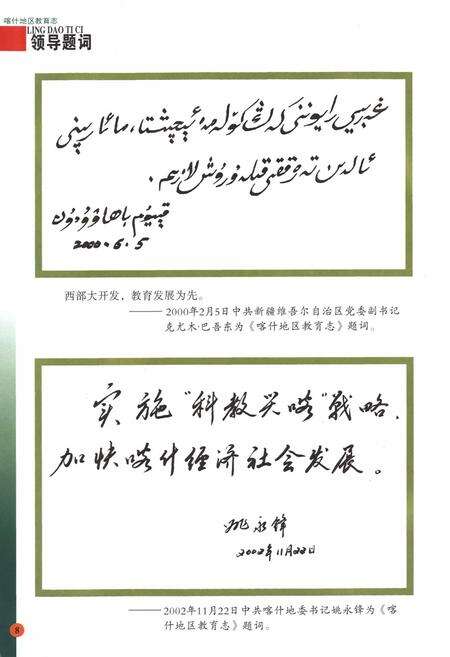 喀什地区教育志
LING DAO TI CI
领导题词
غەربىي رايوننى كەڭ كۆلەمدە ئېچىشتا، مائارىپنى
ئالدىن تەرەققىي قىلدۇرۇش لازىم.
قېيۇم باھاۋۇدۇن
2000.6.5
西部大开发，教育发展为先。
——2000年2月5日中共新疆维吾尔自治区党委副书记
克尤木·巴吾东为《喀什地区教育志》题词。
实施“科教兴喀”战略，
加快喀什经济社会发展。
姚永锋
2002年11月22日
——2002年11月22日中共喀什地委书记姚永锋为《喀
什地区教育志》题词。
8